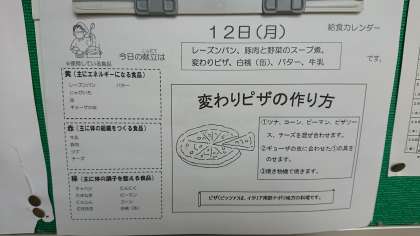 12日(月)
給食カレンダー
今日の献立は
こんだて
レーズンパン、豚肉と野菜のスープ煮、
変わりピザ、白桃(缶)、バター、牛乳
です。
※使用している食品
黄(主にエネルギーになる食品)
レーズンパン バター
じゃがいも
油
ギョーザの皮
赤(主に体の組織をつくる食品)
牛乳
豚肉
ツナ
チーズ
緑(主に体の調子を整える食品)
キャベツ にんにく
たまねぎ ピーマン
にんじん コーン
白桃(缶)
変わりピザの作り方
①ツナ、コーン、ピーマン、ピザソー
ス、チーズを混ぜ合わせます。
②ギョーザの皮に合わせた①の具を
のせます。
③焼き物機で焼きます。
ピザ(ピッツァ)は、イタリア南部ナポリ地方の料理です。